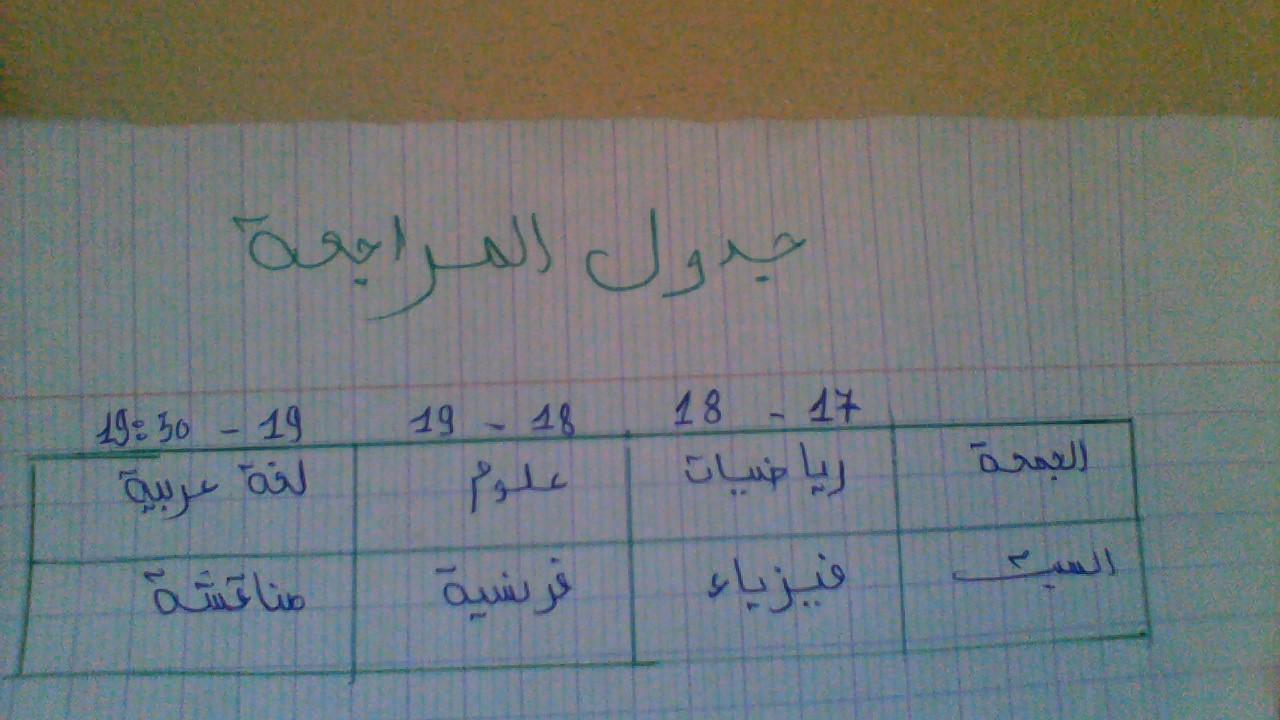 جدول المراجعة
17 - 18 18 - 19 19 - 19:30
الجمعة رياضيات علوم لغة عربية
السبت فيزياء فرنسية مناقشة